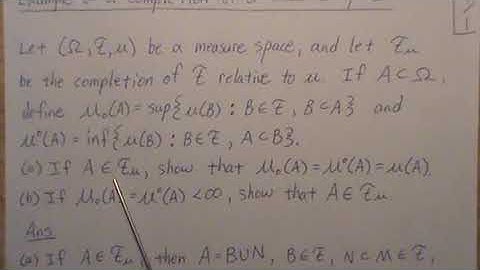 Example of a Completion of a
Let (Ω, Ƒ, μ) be a measure space, and let Ƒμ
be the completion of Ƒ relative to μ. If A⊂Ω,
define μ₀(A) = sup{μ(B) : B∈Ƒ, B⊂A} and
μ⁰(A) = inf{μ(B) : B∈Ƒ, A⊂B}.
(a) If A∈Ƒμ, show that μ₀(A) = μ⁰(A) = μ(A).
(b) If μ₀(A) = μ⁰(A) < ∞, show that A∈Ƒμ.
Ans
(a) If A∈Ƒμ then A = B∪N, B∈Ƒ, N⊂M∈Ƒ,